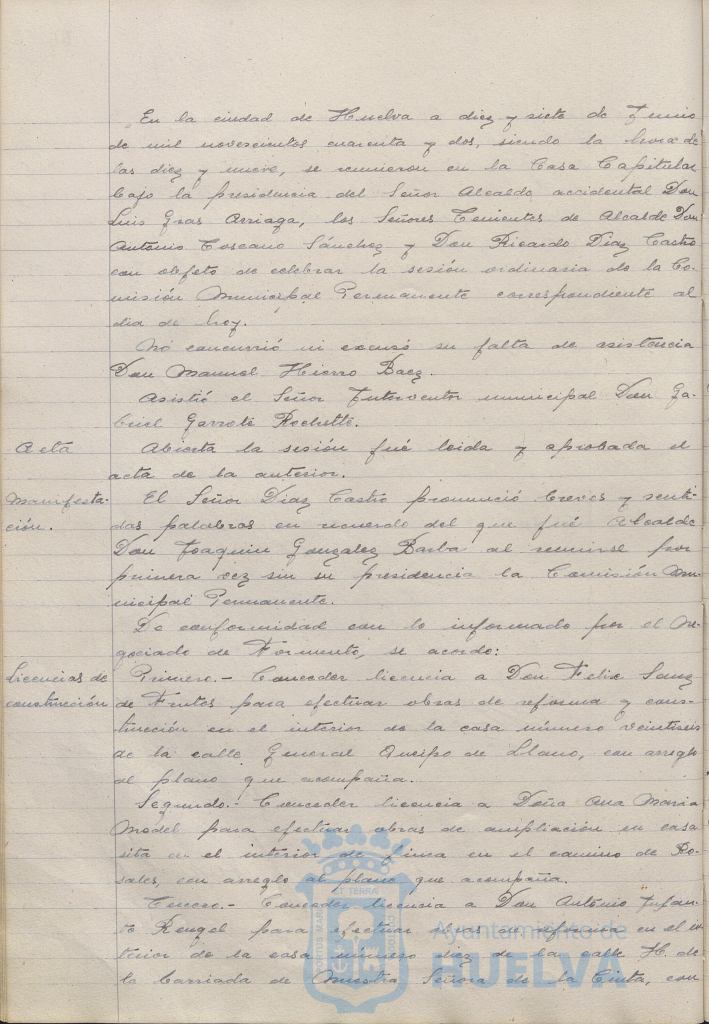 En la ciudad de Huelva a diez y siete de Junio
de mil novecientos cuarenta y dos, siendo la hora de
las diez y nueve, se reunieron en la Casa Capitular
bajo la presidencia del Señor Alcalde accidental Don
Luis Gras Arriaga, los Señores Tenientes de Alcalde Don
Antonio Toscano Sánchez y Don Ricardo Diaz Castro
con objeto de celebrar la sesión ordinaria de la Co-
misión Municipal Permanente correspondiente al
dia de hoy.
No concurrió ni excusó su falta de asistencia
Don Manuel Hierro Baez.
Asistió el Señor Interventor municipal Don Ga-
briel Garrote Rochette.
Acta
Abierta la sesión fué leida y aprobada el
acta de la anterior.
Manifesta-
ción.
El Señor Diaz Castro pronunció breves y senti-
das palabras en recuerdo del que fué Alcalde
Don Joaquin Gonzalez Barba al reunirse por
primera vez sin su presidencia la Comisión Mu-
nicipal Permanente.
De conformidad con lo informado por el Ne-
gociado de Formento, se acordo:
Licencias de
construcción
Primero.- Conceder licencia a Don Felix Sanz
de Frutos para efectuar obras de reforma y cons-
trucción en el interior de la casa número veintiseis
de la calle General Queipo de Llano, con arreglo
al plano que acompaña.
Segundo.- Conceder licencia a Doña Ana Maria
Model para efectuar obras de ampliación en casa
sita en el interior de finca en el camino de Ro-
sales, con arreglo al plano que acompaña.
Tercero.- Conceder licencia a Don Antonio Infan-
te Rengel para efectuar obras en reforma en el in-
terior de la casa número diez de la calle H. de
la barriada de Nuestra Señora de la Cinta, con
PORTUS MARIS ET TERRAE CUSTODIA
Ayuntamiento de
HUELVA